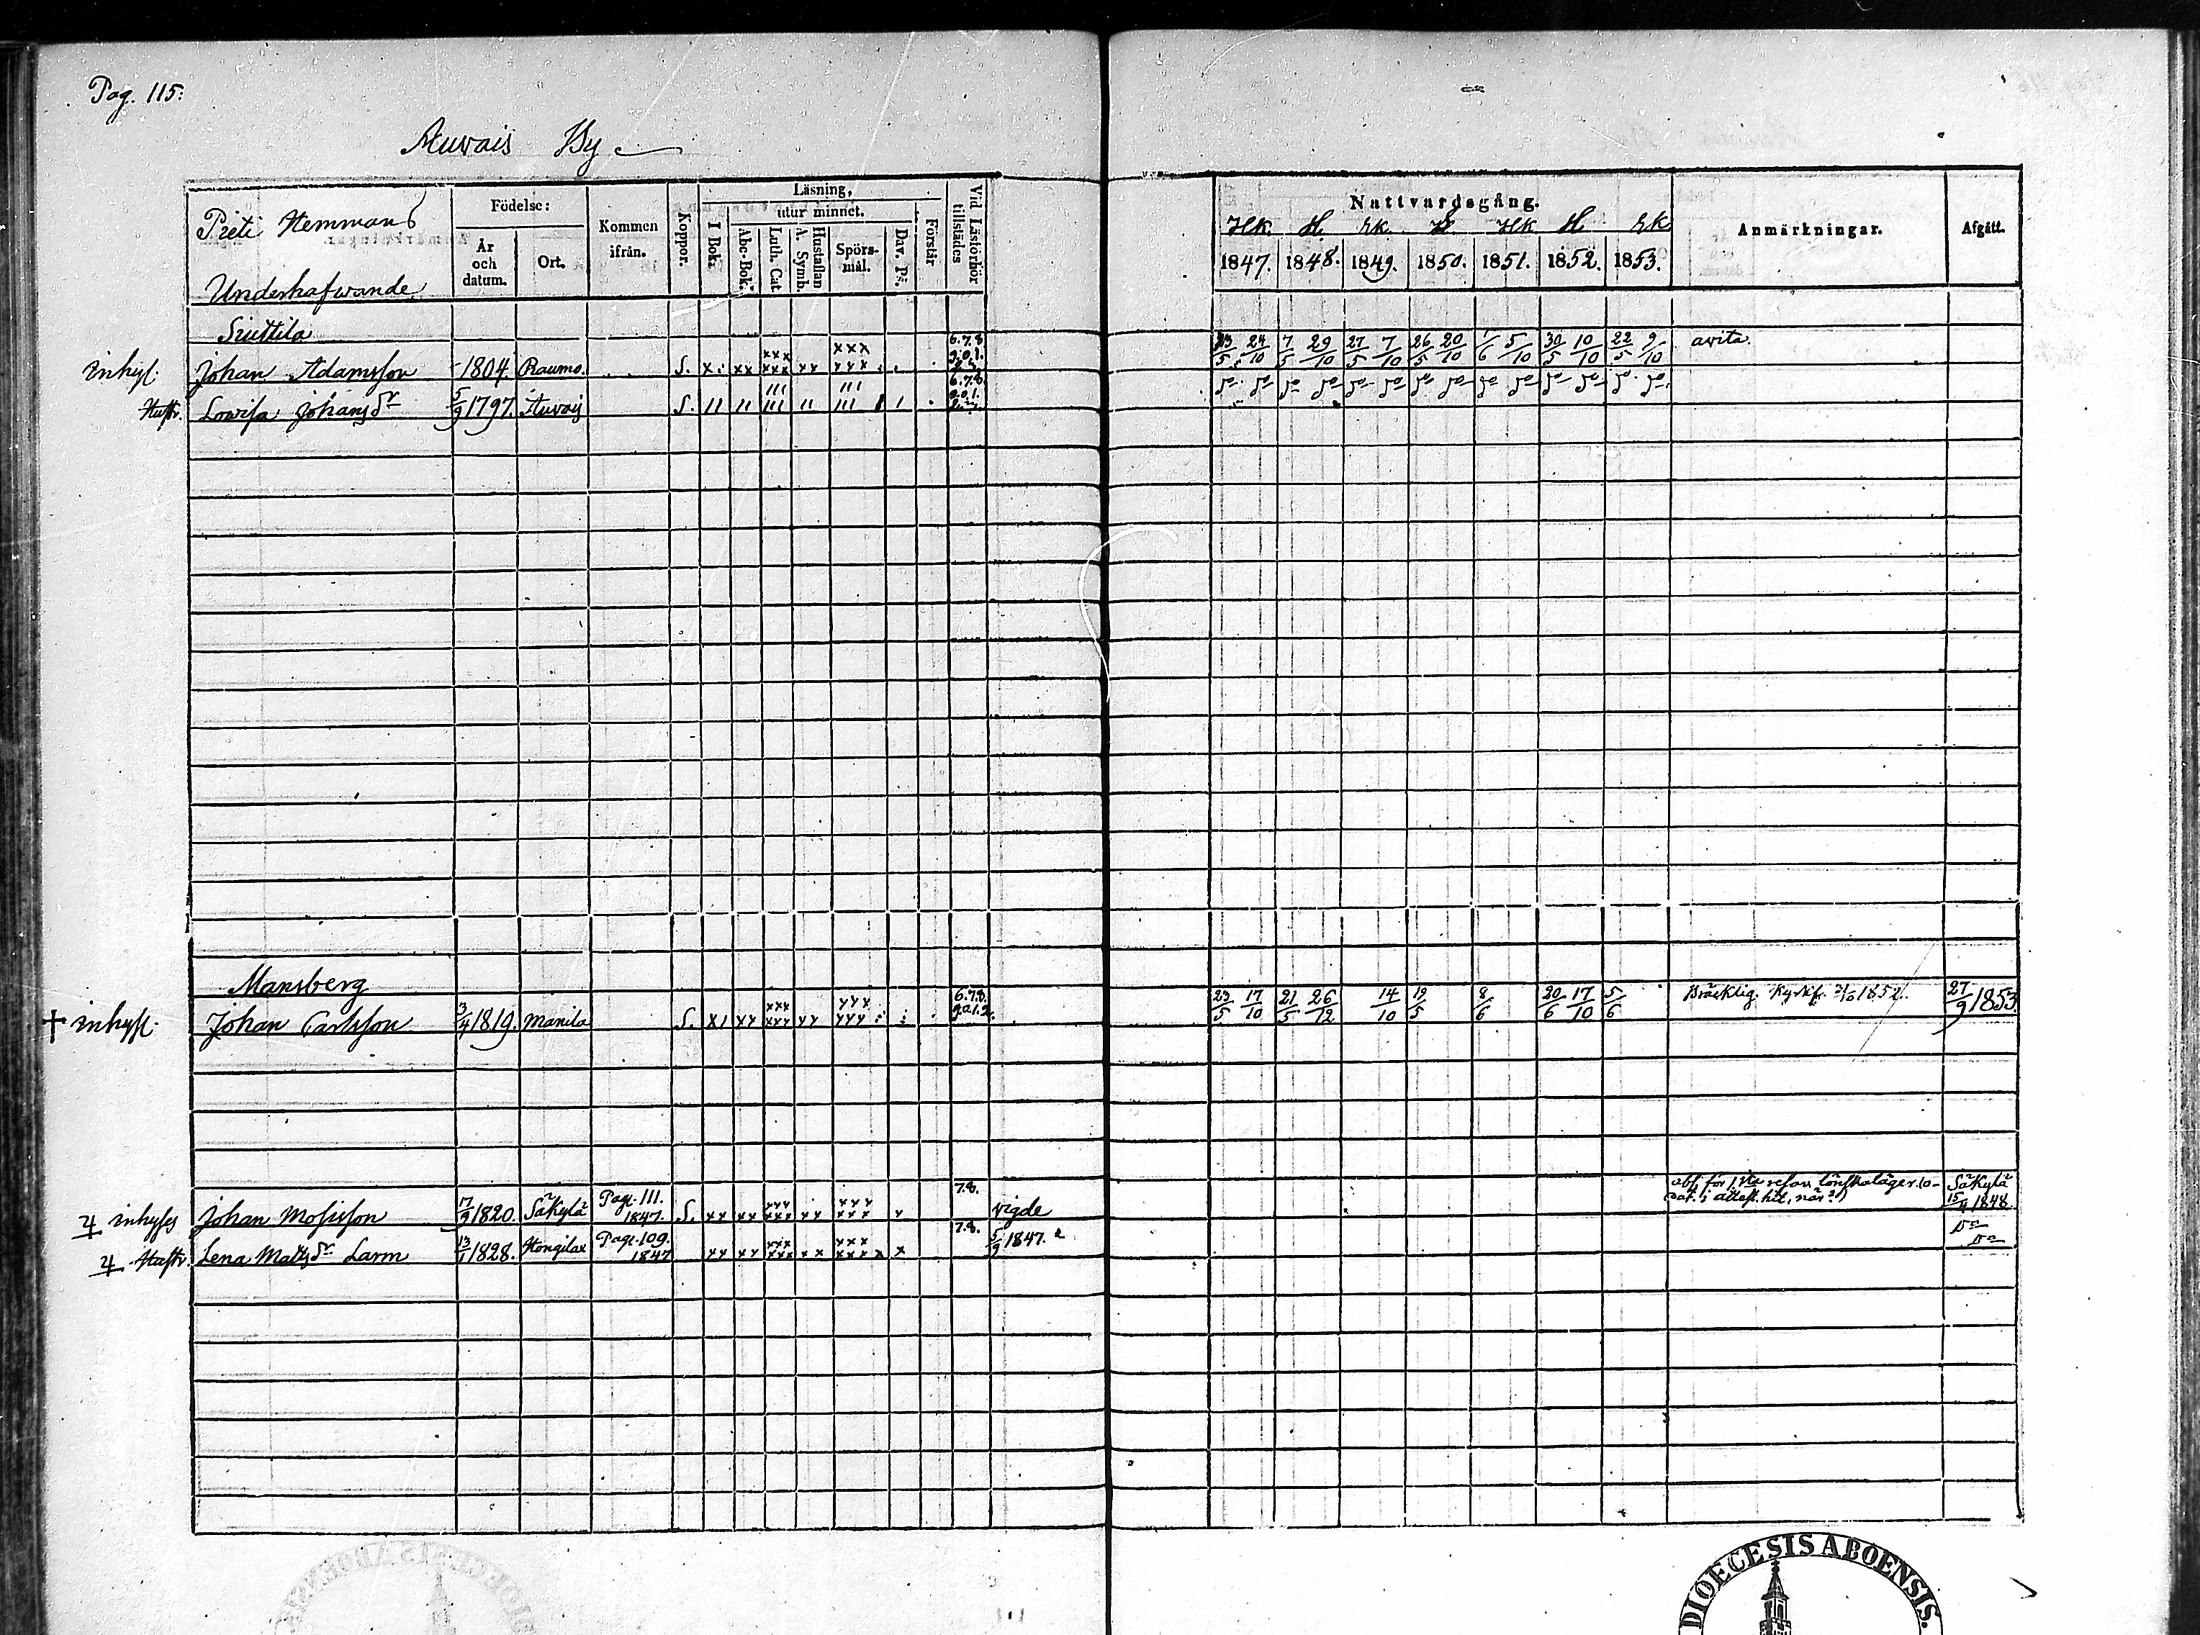 Pag. 115:
Auvais By
Prêti Hemmans
Underhafwande
Födelse:
År och datum.
Ort.
Kommen ifrån.
Koppor.
Läsning,
I Bok.
utur minnet.
Abc-Bok.
Luth. Cat.
A. Symb.
Hustaflan
Spörs-mål.
Dav. Ps.
Förstår
Vid Läsförhör tillstädes
Nattvardsgång.
Hk. H. Hk H Hk
1847. 1848. 1849. 1850. 1851. 1852. 1853.
Anmärkningar.
Afgått.
inhys. Johan Adamsson 1804. Raumo. S. x xx xxx xxx xx xxx xxx 6.7.8. 23/5 24/10 7/5 29/10 27/5 7/10 26/5 20/10 1/6 5/10 30/5 10/10 22/5 9/10 avita.
Hustr. Lowisa Johans dr 5/9 1797. Auvais S. 11 11 111 111 11 111 111 1 1 6.7.8.
Mansberg
† inhyss. Johan Carlsson 3/4 1819. Manila S. x1 xx xxx xxx xx xxx xxx 6.7.8. 9.0.1.2. 23/5 17/10 21/5 26/12 14/10 19/5 8/6 20/6 17/10 5/6 Bräcklig. 1852. 27/9 1853.
inhyses Johan Mosisson 17/9 1820. Säkylä Pag. 111. 1847. S. xx xx xxx xxx xx xxx xxx x 7.8. vigde Säkylä 15/4 1848.
Hustr. Lena Mats dr Larm 13/1 1828. Hongilax Pag. 109. 1847 xx xx xxx xxx xx xxx xxx x x 7.8. 5/9 1847.
DIOECESIS ABOENSIS.